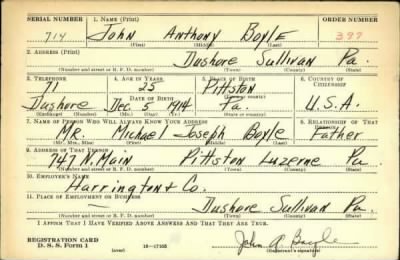 SERIAL NUMBER 1. NAME (Print) ORDER NUMBER
714 John Anthony Boyle 397
(First) (Middle) (Last)
2. ADDRESS (Print)
Dushore Sullivan Pa.
(Number and street or R. F. D. number) (Town) (County) (State)
3. TELEPHONE 4. AGE IN YEARS 5. PLACE OF BIRTH 6. COUNTRY OF CITIZENSHIP
71 25 Pittston
DATE OF BIRTH (Town or county)
Dushore Dec. 5 1914 Pa. U.S.A.
(Exchange) (Number) (Mo.) (Day) (Yr.) (State or country)
7. NAME OF PERSON WHO WILL ALWAYS KNOW YOUR ADDRESS 8. RELATIONSHIP OF THAT PERSON
Mr. Michael Joseph Boyle Father
(Mr., Mrs., Miss) (First) (Middle) (Last)
9. ADDRESS OF THAT PERSON
747 N. Main Pittston Luzerne Pa
(Number and street or R. F. D. number) (Town) (County) (State)
10. EMPLOYER'S NAME
Harrington & Co.
11. PLACE OF EMPLOYMENT OR BUSINESS
Dushore Sullivan Pa.
(Number and street or R. F. D. number) (Town) (County) (State)
I AFFIRM THAT I HAVE VERIFIED ABOVE ANSWERS AND THAT THEY ARE TRUE.
REGISTRATION CARD
D. S. S. Form 1 (over) 16—17105 John A. Boyle
(Registrant's signature)